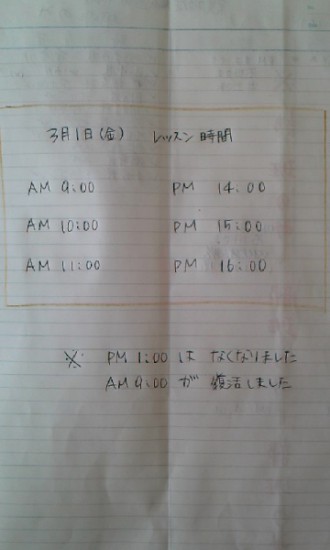 3月1日(金) レッスン時間
AM 9:00 PM 14:00
AM 10:00 PM 15:00
AM 11:00 PM 16:00
※ PM 1:00は なくなりました
AM 9:00が 復活しました